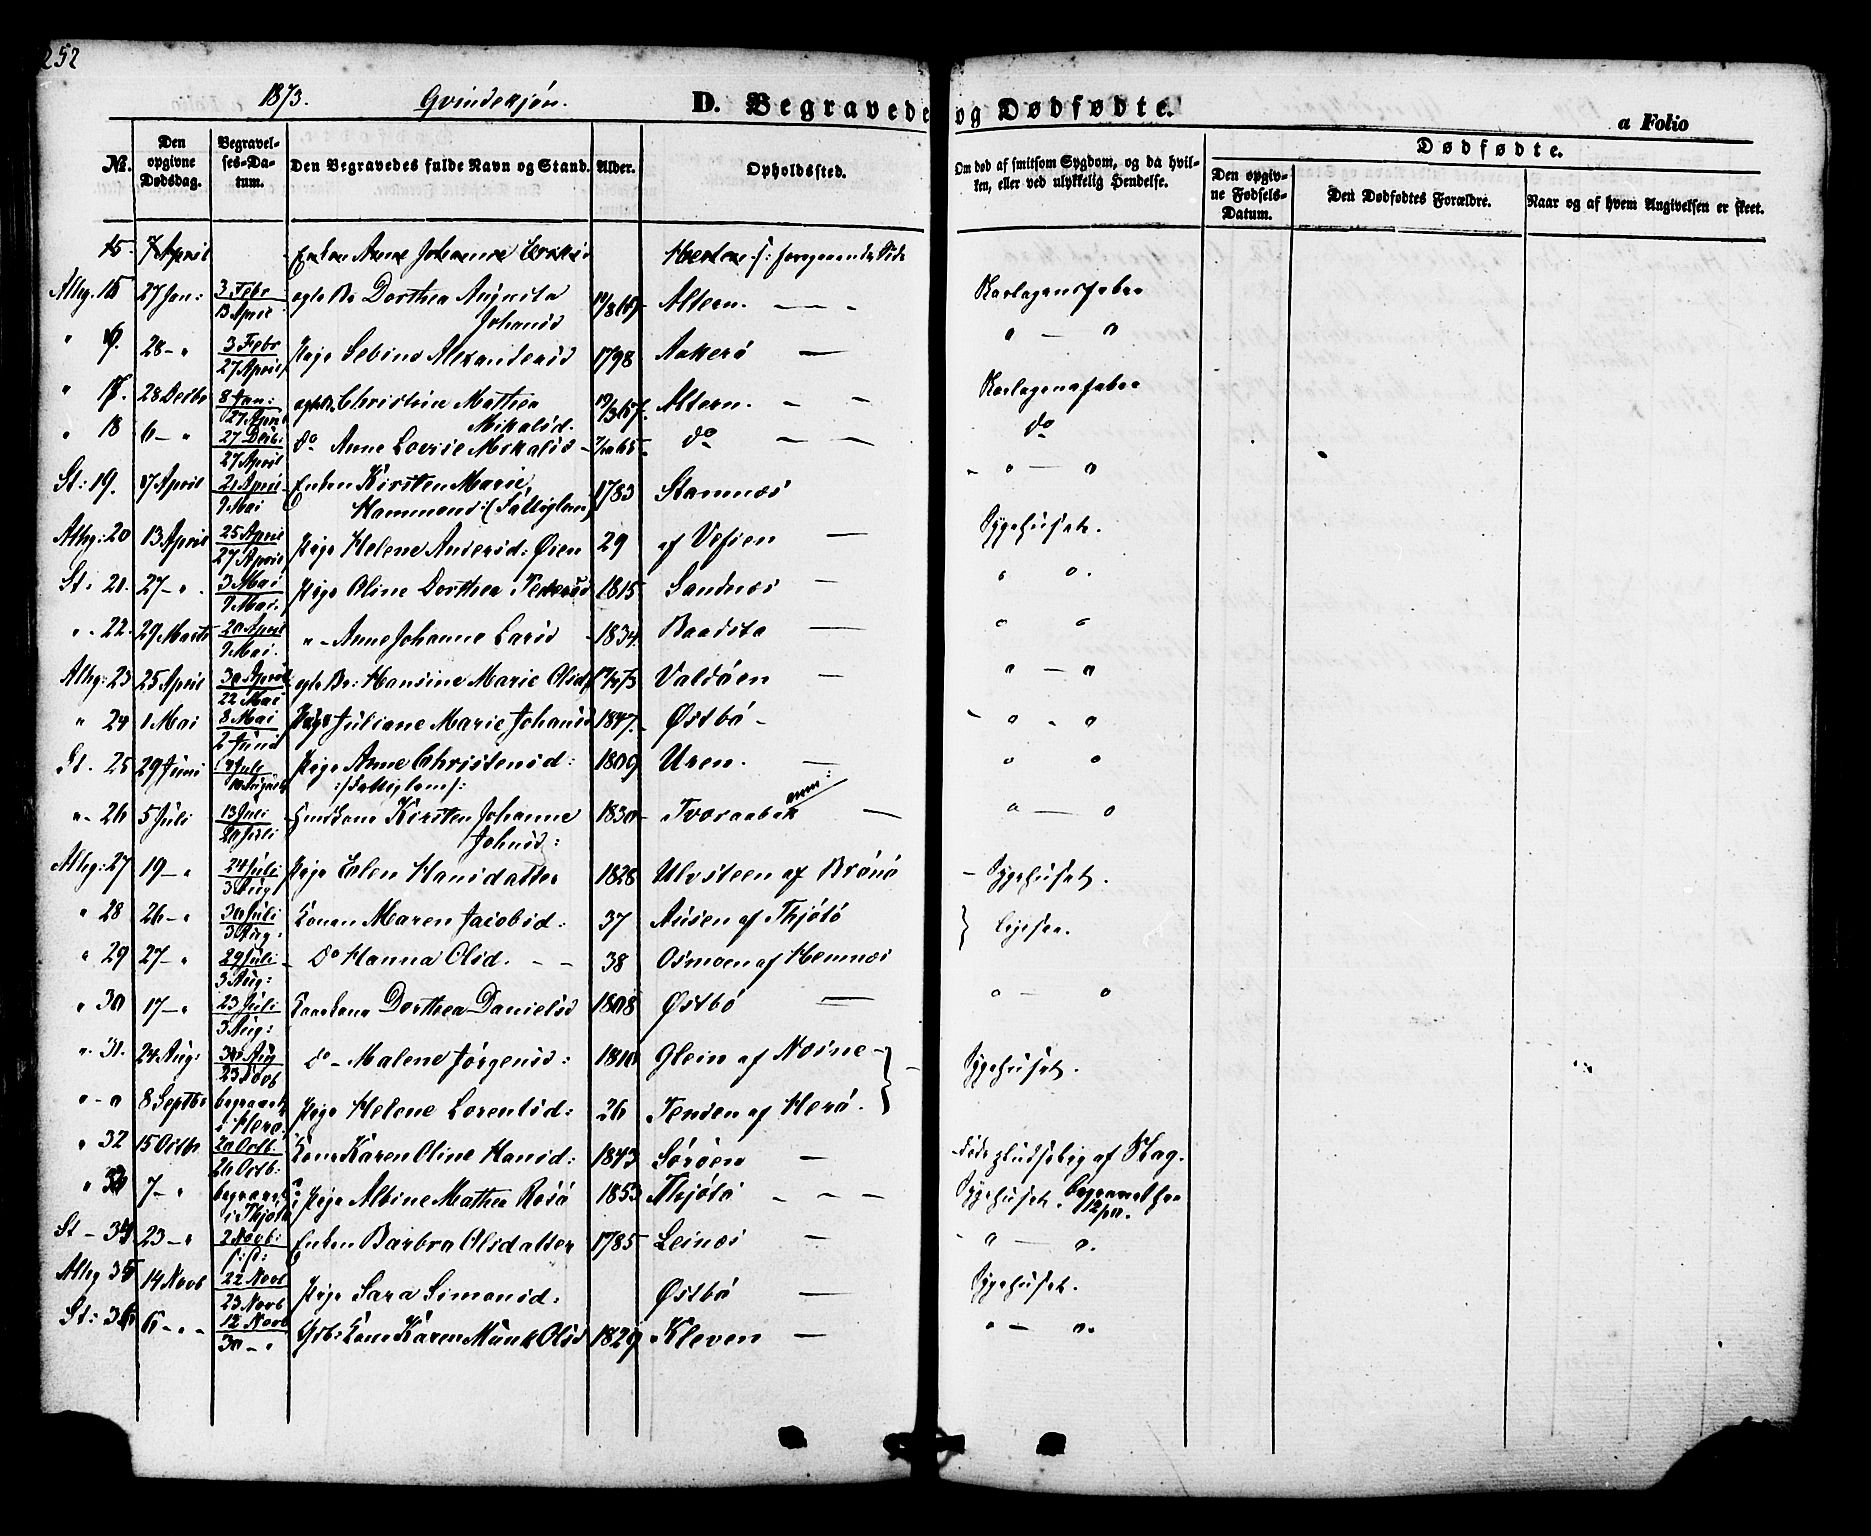 252
1873. Qvindekjøn. D. Begravede og Dødfødte. a Folio
No. Den opgivne Dødsdag. Begravelses-Datum. Den Begravedes fulde Navn og Stand. Alder. Opholdssted. Om død af smitsom Sygdom, og da hvilken, eller ved ulykkelig Hendelse. Dødfødte. Den opgivne Fødsels-Datum. Den Dødfødtes Forældre. Naar og af hvem Angivelsen er skeet.
15. 7 April Enken Anne Johanne
Alhg. 15 27 Jan: 3 Febr 13 April ægte Br Dorthea Augusta Johansd Altern. — Skarlagensfeber
" 28 — " 3 Febr 27 April Pige Sebina Alexandersd 1798 Aakerø — " — "
" 17. 28 Decbr 8 Jan: 27 April Christine Mathea Mikalsd. Altern. — — Skarlagensfeber
" 18 6 — " 27 Decbr: 27 April do Anne Mikalsd — do — — do
St: 19. 17 April 21 April 9 Mai Enken Kirsten Marie Hammond: (Fattiglem) 1783 Stamnes " — "
Alhg: 20 13 April 25 April 27 April Pige Helene Andersd: Øien 29 af Vefsen — Sygehuset.
St. 21. 27 — ". 3 Mai 9 Mai. Pige Oline Dorthea Pedersd 1815 Sandnes — " "
" 22. 29 Marts 20 April 9 Mai. " — Anne Johanne Larsd 1834 — " "
Alhg: 23 25 April 30 April 22 Mai ægte Br: Hansine Marie Olsd Valdøen — " — "
" 24 1 Mai 8 Mai 2 Juni Pige Juliane Marie Johansd 1847. Østbø — " — "
St. 25 29 Juni Juli Pige Anne Christensd: /:Fattiglem:/ 1809 Uren. — " "
" 26 5 Juli 13 Juli 20 Juli Kirsten Johanne Johnsd: 1830 — " — "
Alhg: 27 19 — " 24 Juli 3 Aug Pige Elen Hansdatter 1828 Ulvsteen af Brønø — Sygehuset.
" 28 26 — " 30 Juli 3 Aug. Konen Maren Jacobsd: 37 Ausen af Thjøtø }
" 29 27 — " 29 Juli 3 Aug: do Hanna Olsd. — — 38 Osmoen af Hemnes Ligesaa.
" 30 17 — " 23 Juli 3 Aug: Dorthea Danielsd 1808 Østbø — " "
" 31. 24 Aug: 30 Aug 23 Novb do — Malene Jørgensd: 1810 Glein af Næsne — }
" — " 8 Septbr begravet i Herø. Pige Helene Lorentsd: 26 Tenden af Herø. } Sygehuset.
" 32 15 Octbr 20 Octb: 26 Octb: Kone Karen Oline Hansd: 1843 Sørøen — af Slag.
" 33 7 — " begravet i Thjøtø Pige Albine Mathea Rosø 1853 Thjøtø — — — Sygehuset.
St — 34 23 — " 2 Novb: Enken Barbra Olsdatter 1785 Leines — " — ".
Alhg 35 14 Novb 22 Novb 23 Novb Pige Sara Simonsd: Østbø — Sygehuset.
St: 36 6 — " — 12 Novb 30 — " Kone Karen Munk Olsd 1829 Kleven — " — ".